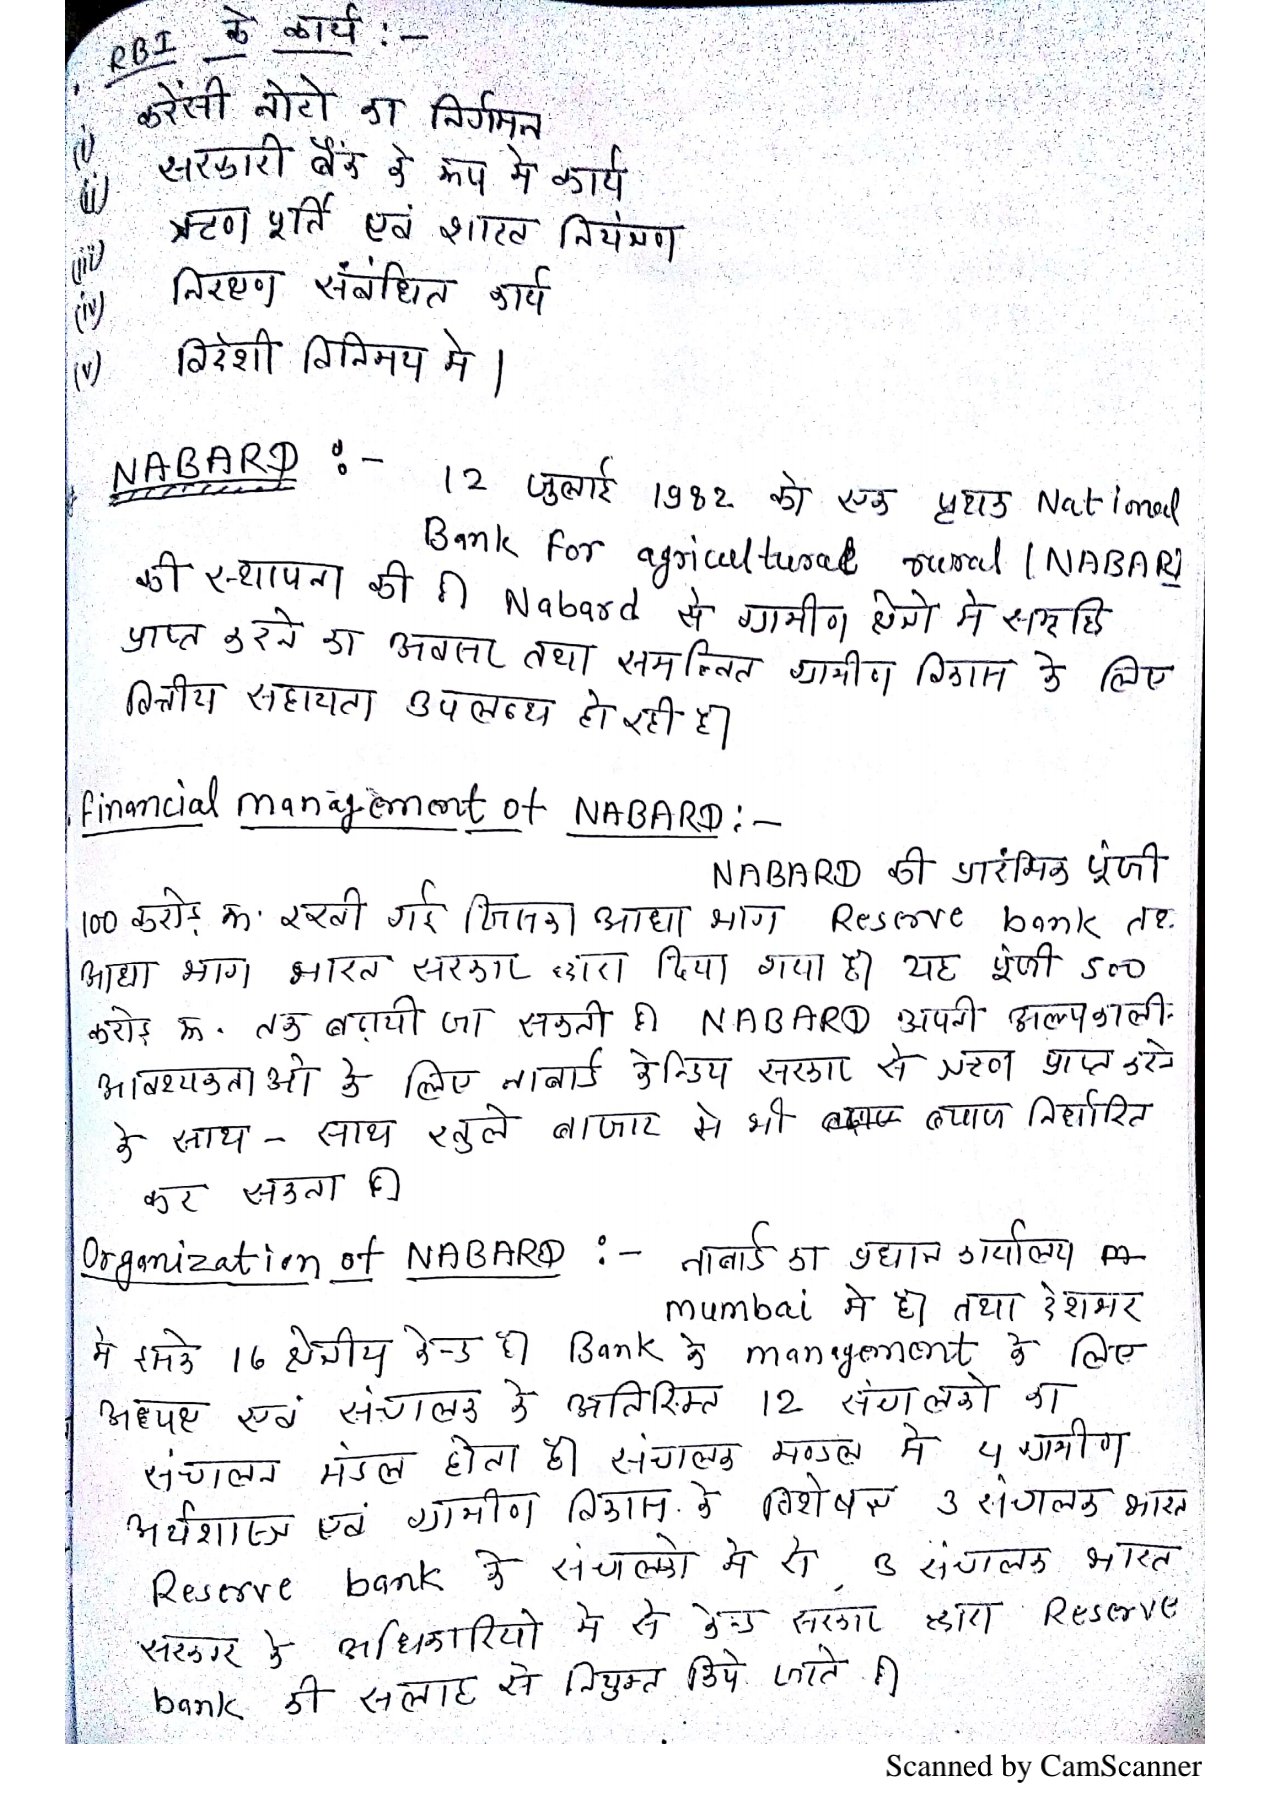 RBI के कार्य :-
(i) करेंसी नोटो का निर्गमन
(ii) सरकारी बैंक के रूप मे कार्य
(iii) ऋण पूर्ति एवं शाख नियंत्रण
(iv) निरक्षण संबंधित कार्य
(v) विदेशी विनिमय मे |
NABARD :- 12 जुलाई 1982 को एक पृथक National
Bank for agricultural rural (NABARD
की स्थापना की है। Nabard से ग्रामीण क्षेत्रो मे समृद्धि
प्राप्त करने का अवसर तथा समन्वित ग्रामीण विकास के लिए
वित्तीय सहायता उपलब्ध हो रही है।
Financial management of NABARD :-
NABARD की प्रारंभिक पूंजी
100 करोड़ रू. रखी गई जिसका आधा भाग Reserve bank
आधा भाग भारत सरकार द्वारा दिया गया है। यह पूंजी 500
करोड़ रू. तक बढ़ायी जा सकती है। NABARD अपनी अल्पकाली
आवश्यकताओ के लिए नाबार्ड केन्द्रिय सरकार से ऋण प्राप्त करने
के साथ - साथ खुले बाजार से भी ब्याज निर्धारित
कर सकता है।
Organization of NABARD :- नाबार्ड का प्रधान कार्यालय
mumbai मे है। तथा देशभर
मे इसके 16 क्षेत्रीय केन्द्र है। Bank के management के लिए
अध्यक्ष एवं संचालक के अतिरिक्त 12 संचालको का
संचालन मंडल होता है। संचालक मण्डल मे 4 ग्रामीण
अर्थशास्त्र एवं ग्रामीण विकास के विशेषज्ञ 3 संचालक भारत
Reserve bank के संचालको मे से, 3 संचालक भारत
सरकार के अधिकारियो मे से केन्द्र सरकार द्वारा Reserve
bank की सलाह से नियुक्त किये जाते है।
Scanned by CamScanner